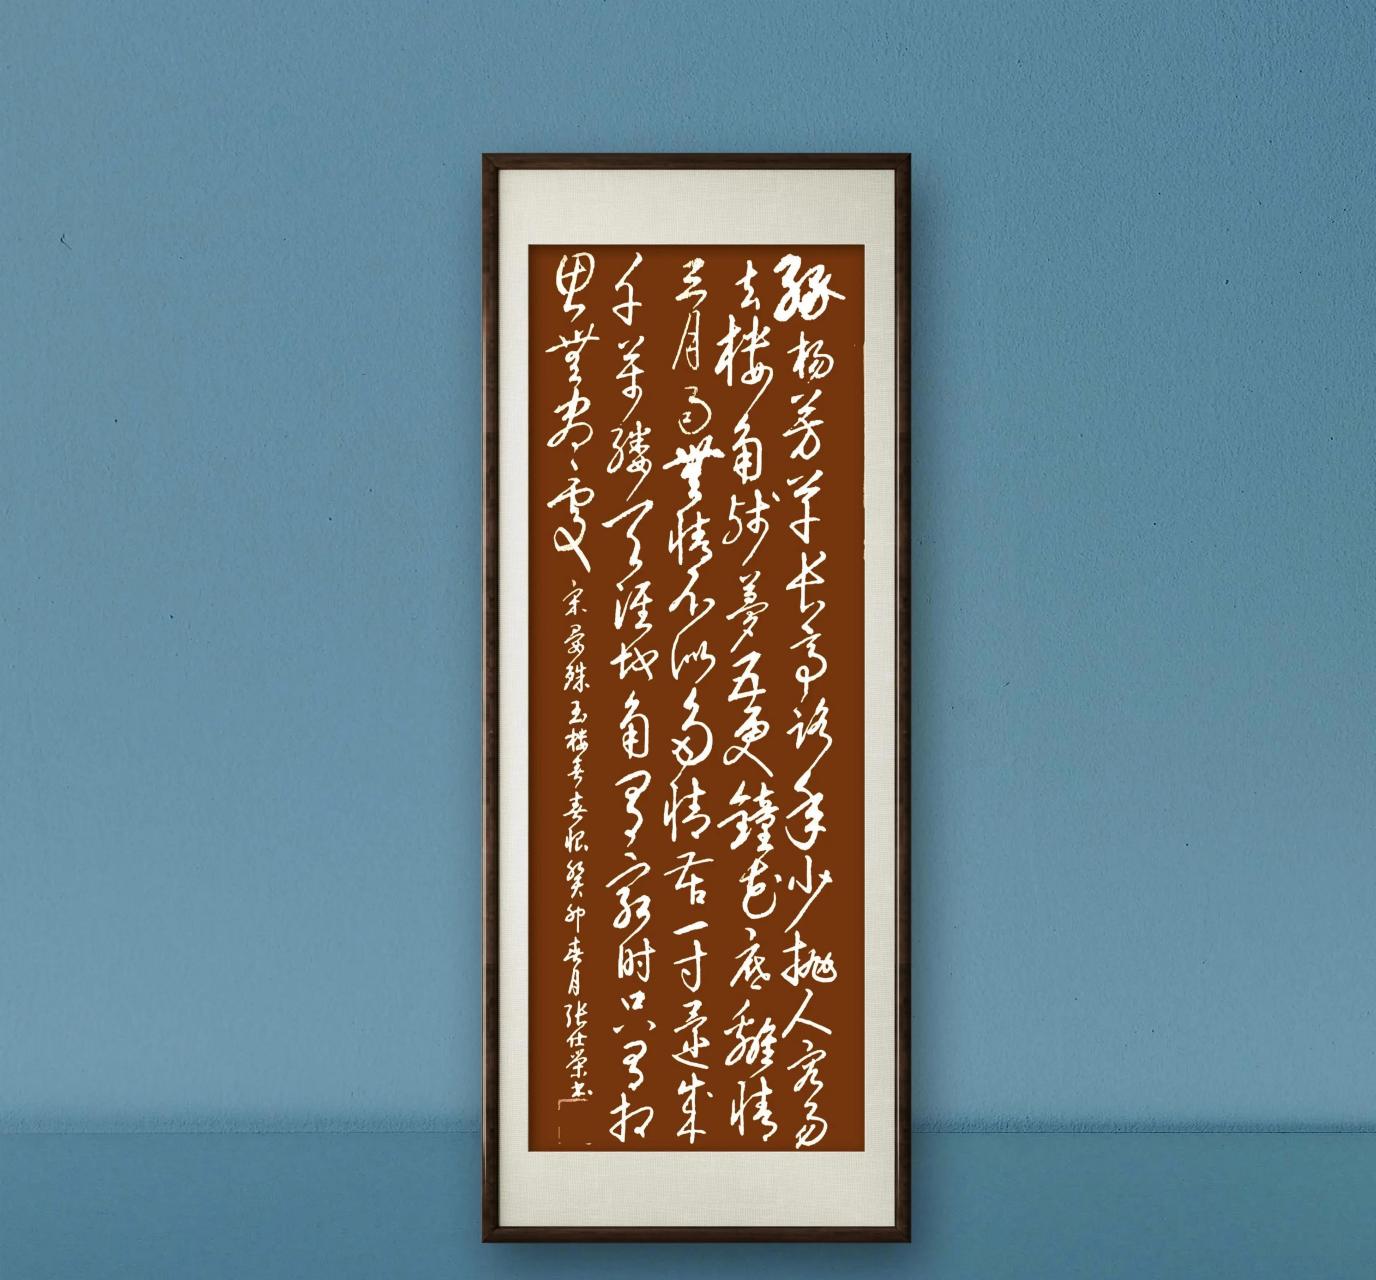 绿杨芳草长亭路年少抛人容易
去楼角残梦五更鐘花底離情
三月雨無情不似多情苦一寸还成
千万缕天涯地角有穷时只有相
思無尽處 宋晏殊玉楼春春恨癸卯春月张仕荣书